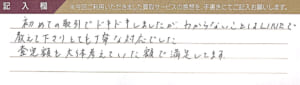 記入欄 ※今回ご利用いただきました買取サービスの感想を、手書きにてご記入お願いします。
初めての取引でドキドキしましたが、わからないことはLINEで
教えて下さりとても丁寧な対応でした
査定額も大体考えていた額で満足してます。